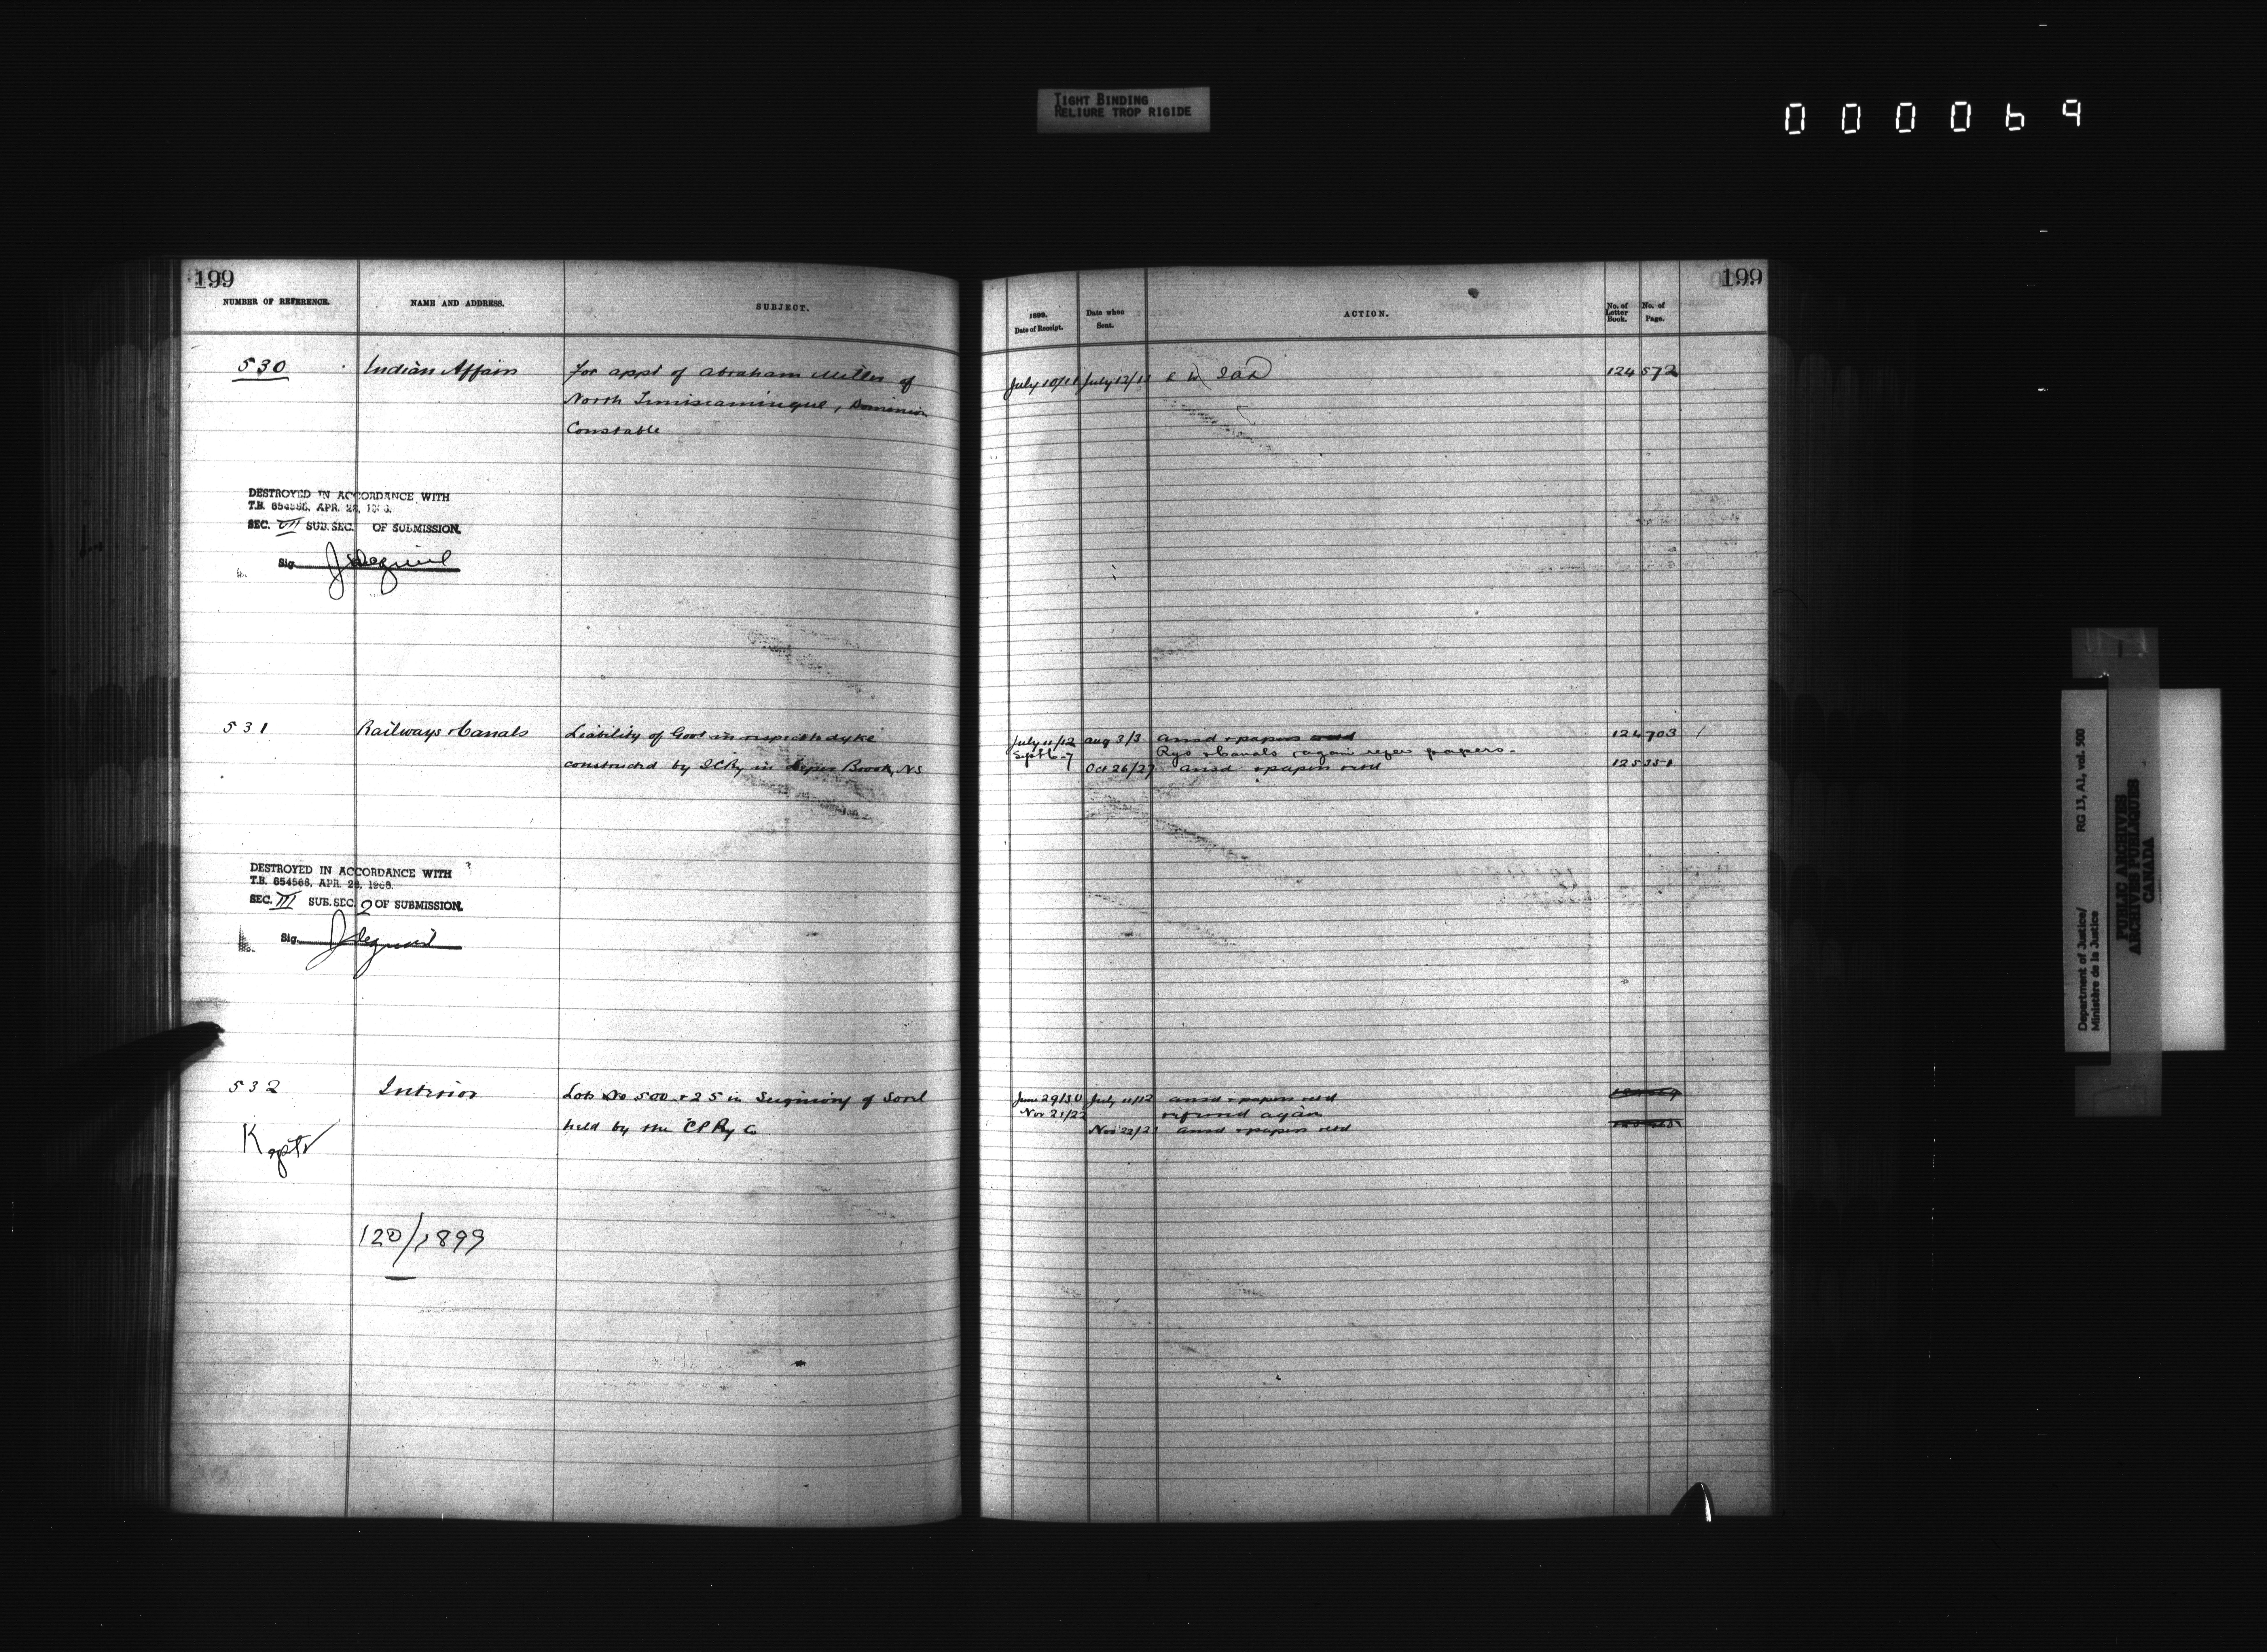 TIGHT BINDING
RELIURE TROP RIGIDE
000069
199
NUMBER OF REFERENCE. NAME AND ADDRESS. SUBJECT.
530 Indian Affairs for appt of Abraham Miller of
North Timiscamingue, Dominion
Constable
DESTROYED IN ACCORDANCE WITH
T.B. 654566, APR. 28, 1966.
SEC. VII SUB. SEC. OF SUBMISSION.
Sig.
531 Railways & Canals Liability of Govt in respect dyke
constructed by ICRy in Brook, NS
DESTROYED IN ACCORDANCE WITH
T.B. 654566, APR. 28, 1966.
SEC. III SUB. SEC. 2 OF SUBMISSION.
Sig.
532 Interior Lots No 500 & 25 in Seigniory of Sorel
held by the CPRy Co
120/1899
199
1899. Date of Receipt. Date when Sent. ACTION. No. of Letter Book. No. of Page.
July 10/11 July 12/13 124 572
July 11/12 Aug 3/3 ansd & papers 124 703
Sept 6-7 Rys & Canals again refer papers.
Oct 26/27 ansd & papers retd 125 351
June 29/30 July 11/12 ansd & papers retd
Nov 21/22 referred again
Nov 22/23 ansd & papers retd
Department of Justice/ RG 13, A1, vol. 500
Ministère de la Justice
PUBLIC ARCHIVES
ARCHIVES PUBLIQUES
CANADA